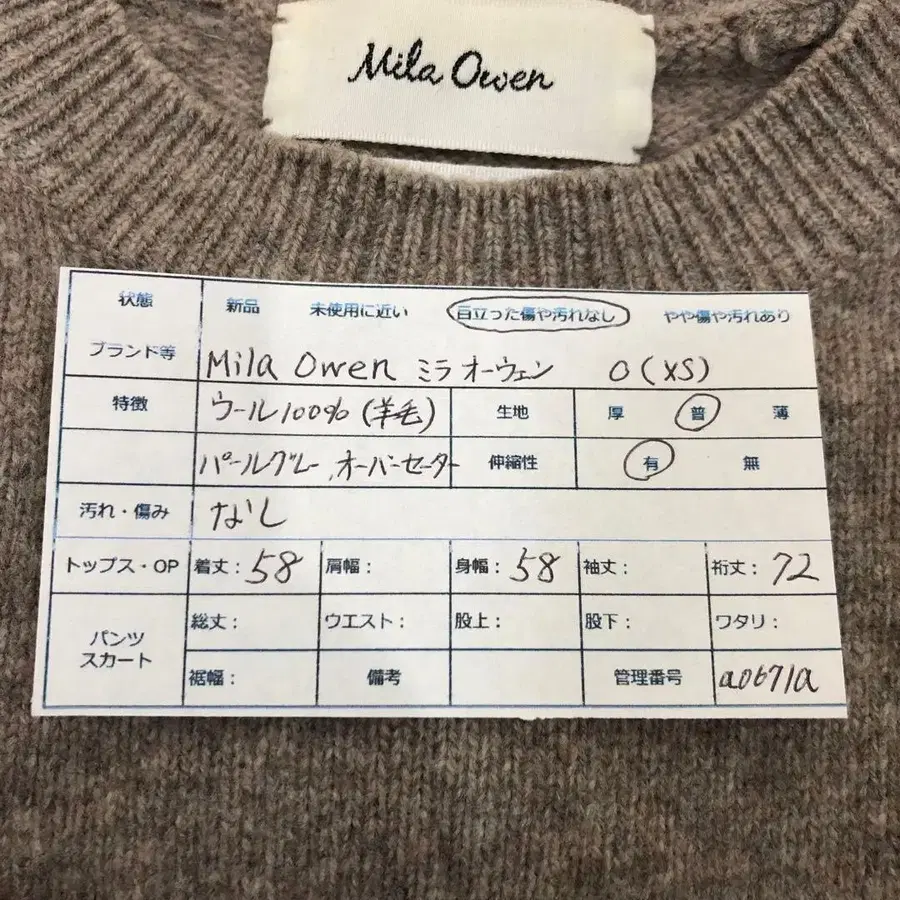 Mila Owen
状態 新品 未使用に近い 目立った傷や汚れなし やや傷や汚れあり
ブランド等 Mila Owen ミラ オーウェン 0(XS)
特徴 ウール100%(羊毛) 生地 厚 普 薄
パールグレー、オーバーセーター 伸縮性 有 無
汚れ・傷み なし
トップス・OP 着丈:58 肩幅: 身幅:58 袖丈: 裄丈:72
パンツ
スカート
総丈: ウエスト: 股上: 股下: ワタリ:
裾幅: 備考 管理番号 a0671a